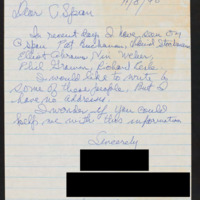 11/8/94
Dear C Span
In recent days I have seen on
C Span Pat Buchanan, 
Elliott Abrams, Vin Weber,
Phil Gramm, Richard
I would like to write to
some of these people. But I
have no address.
I wonder if you could
help me with this information
Sincerely